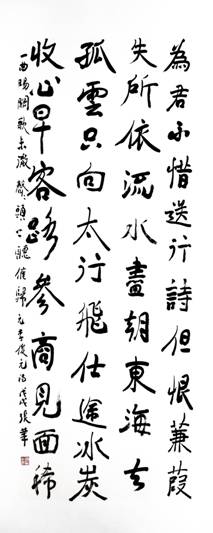 為君不惜送行詩但恨蒹葭
失所依流水盡朝東海去
孤雲只向太行飛仕途冰炭
收心早客路參商見面稀
一曲陽關歌未徹 頭 催歸 元李俊 詩戊戌張華